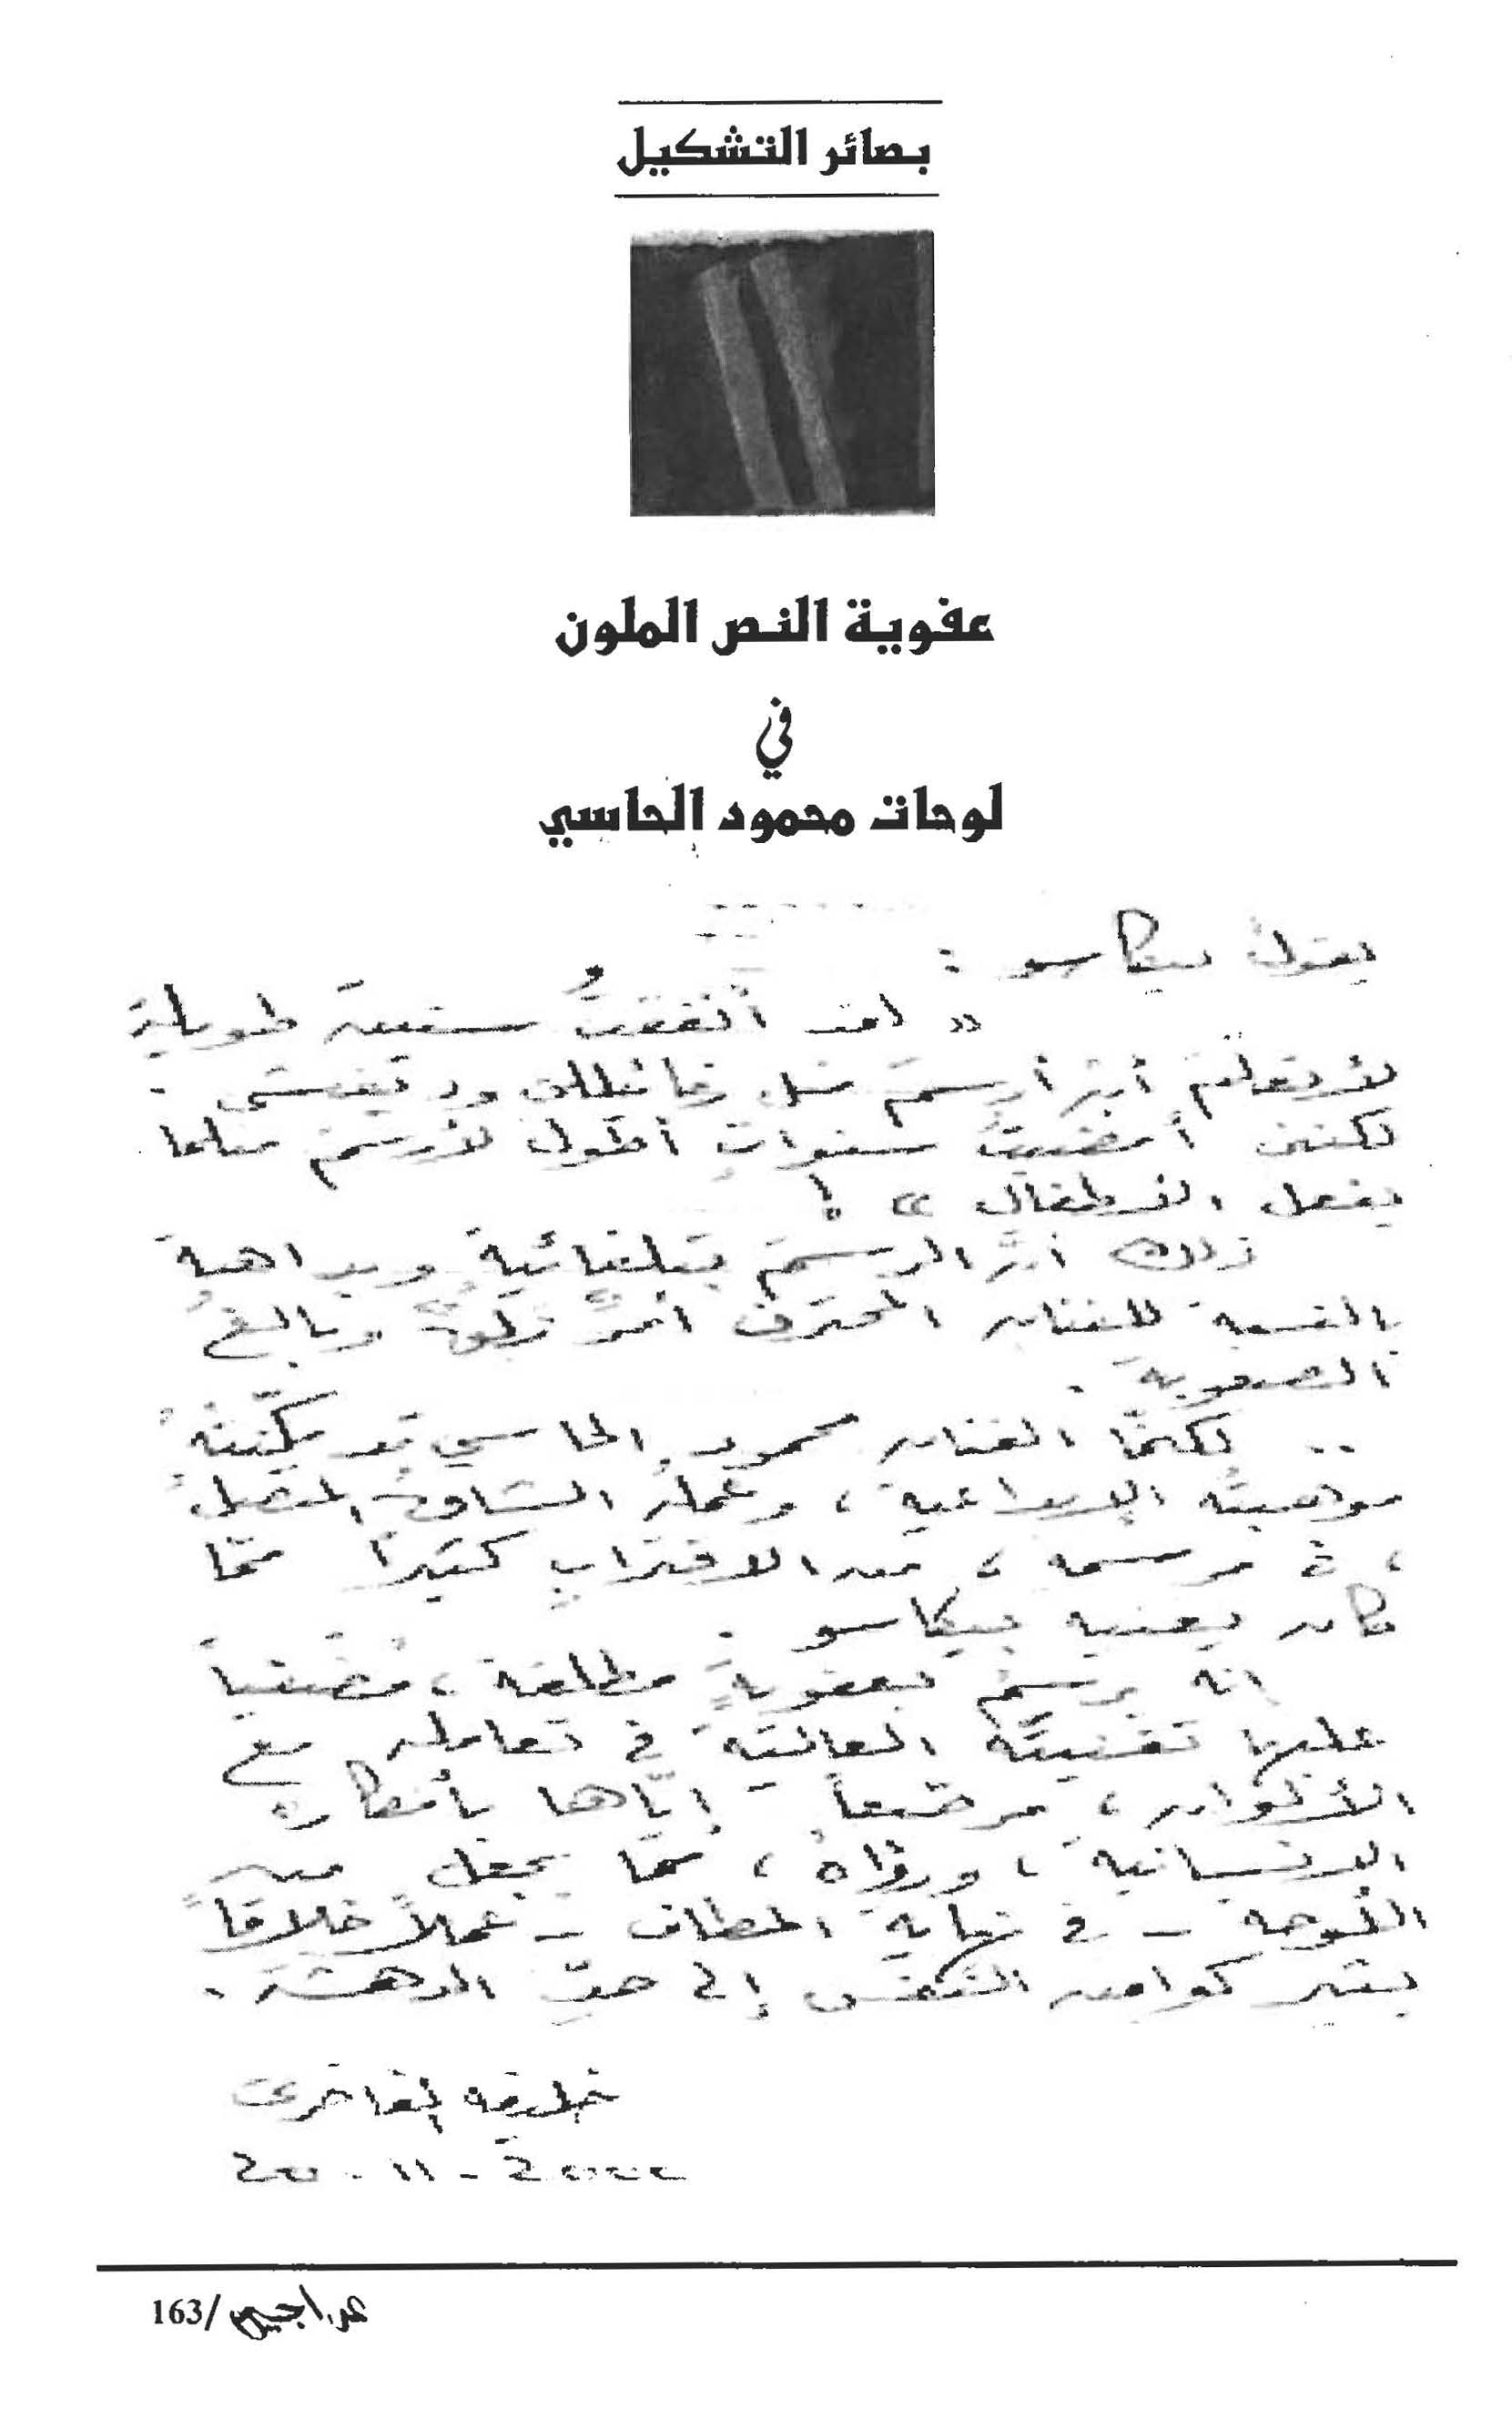 بصائر التشكيل
عفوية النص الملون
في
لوحات محمود الحاسي
يقول بيكاسو :
« لقد أنفقتُ سنينَ طويلة
لأتعلمَ أنْ أرسمَ مثل رفائيللو ودفنشي .
لكنني أمضيتُ سنواتٍ أطول لأرسمَ مثلما
يفعل الأطفال » !
ذلك أنَّ الرسمَ بتلقائيةٍ وبداهةٍ
بالنسبة للفنان المحترف أمرٌ وبالغُ
الصعوبة .
.. لكنّما الفنان محمود الحاسي قد مكّنتهُ
موهبتُه الإبداعية ، وعملُه الشاقُّ المتصلُ
، في مرسمه ، من الاقترابِ كثيراً ممّا
كان يعنيه بيكاسو .
إنه يرسمُ بعفويةٍ مطلقة ، مُضيفاً
عليها تقنيتَه العاليةَ في تعامله مع
الألوان ، مرصّعاً إيّاها بأفكاره
الإنسانية ، ورؤاهُ ، ممّا يجعل من
اللوحة - في نهاية المطاف - عملاً خلاقاً
يثير كوامن النفس إلى حدّ الدهشة .
خليفه الفاخري
20 - 11 - 2000
عراجين /163